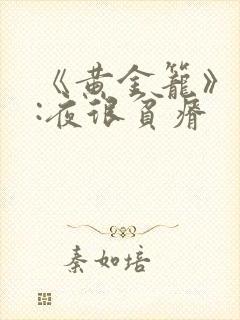 《黄金笼》
:夜很贫瘠
秦如培